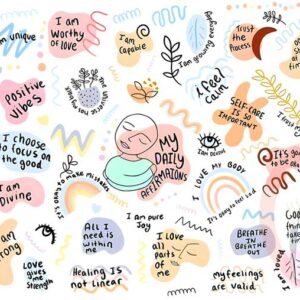 I am unique
I am
Worthy
of love
I am
Capable
I am growing everyday
Trust
the
Process
Positive
Vibes
The universe has my back
I feel
Calm
SELF-CARE
IS SO
IMPORTANT
I choose
to focus on
the good
MY
DAILY
AFFIRMATIONS
I am Divine
It's good
to be
I am
Divine
It's okay to make mistakes
I LOVE MY BODY
It's okay to feel sad
I am
Strong
All I
need is
within me
I am pure
Joy
BREATHE IN
BREATHE
OUT
Love
gives me
Strength
HEALING IS
not linear
I LOVE
all
parts of
me
my feelings
are valid